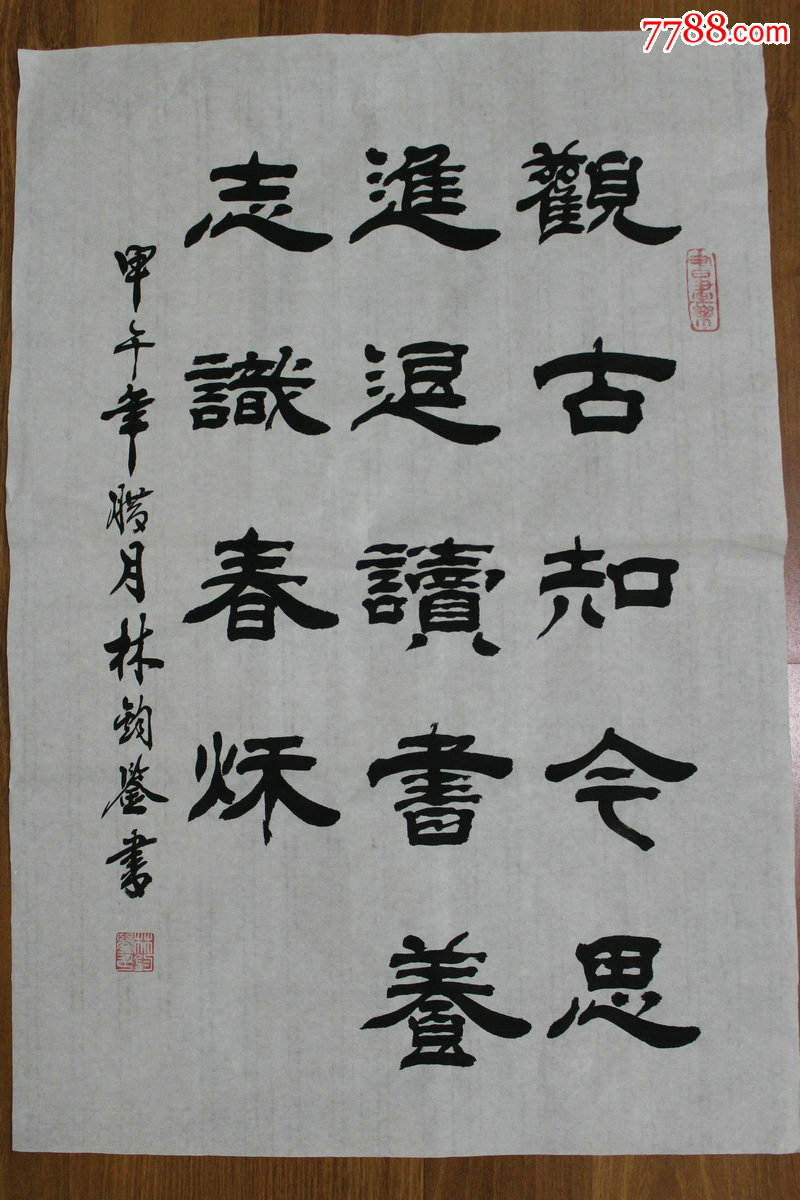 7788.com
觀古知今思
進退讀書養
志識春秌
甲午年腊月林鈞鑒書